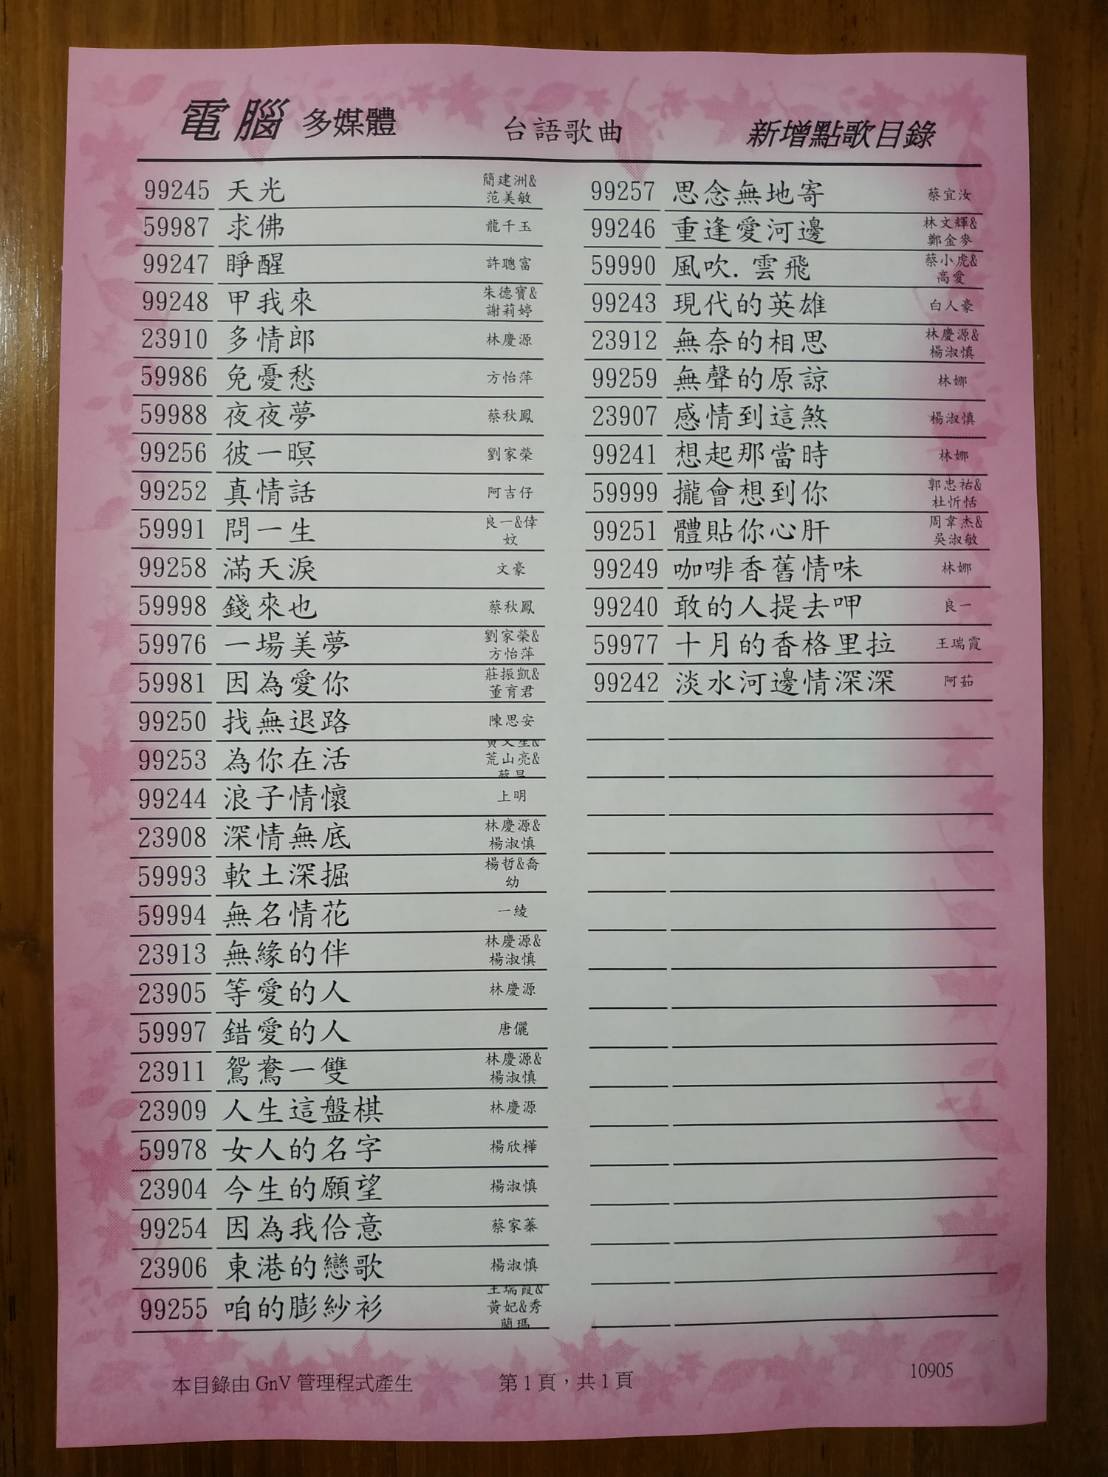 電腦 多媒體 台語歌曲 新增點歌目錄
99245 天光 簡建洲&范美敏
59987 求佛 龍千玉
99247 睜醒 許聰富
99248 甲我來 朱德寶&謝莉婷
23910 多情郎 林慶源
59986 免憂愁 方怡萍
59988 夜夜夢 蔡秋鳳
99256 彼一暝 劉家榮
99252 真情話 阿吉仔
59991 問一生 良一&偉妏
99258 滿天淚 文豪
59998 錢來也 蔡秋鳳
59976 一場美夢 劉家榮&方怡萍
59981 因為愛你 莊振凱&董育君
99250 找無退路 陳思安
99253 為你在活 荒山亮&
99244 浪子情懷 上明
23908 深情無底 林慶源&楊淑慎
59993 軟土深掘 楊哲&喬幼
59994 無名情花 一綾
23913 無緣的伴 林慶源&楊淑慎
23905 等愛的人 林慶源
59997 錯愛的人 唐儷
23911 鴛鴦一雙 林慶源&楊淑慎
23909 人生這盤棋 林慶源
59978 女人的名字 楊欣樺
23904 今生的願望 楊淑慎
99254 因為我佮意 蔡家蓁
23906 東港的戀歌 楊淑慎
99255 咱的膨紗衫 王瑞霞&黃妃&秀蘭瑪
99257 思念無地寄 蔡宜汝
99246 重逢愛河邊 林文輝&鄭金麥
59990 風吹.雲飛 蔡小虎&高愛
99243 現代的英雄 白人豪
23912 無奈的相思 林慶源&楊淑慎
99259 無聲的原諒 林娜
23907 感情到這煞 楊淑慎
99241 想起那當時 林娜
59999 攏會想到你 郭忠祐&杜忻恬
99251 體貼你心肝 周韋杰&吳淑敏
99249 咖啡香舊情味 林娜
99240 敢的人提去呷 良一
59977 十月的香格里拉 王瑞霞
99242 淡水河邊情深深 阿茹
本目錄由 GnV 管理程式產生 第1頁，共1頁 10905